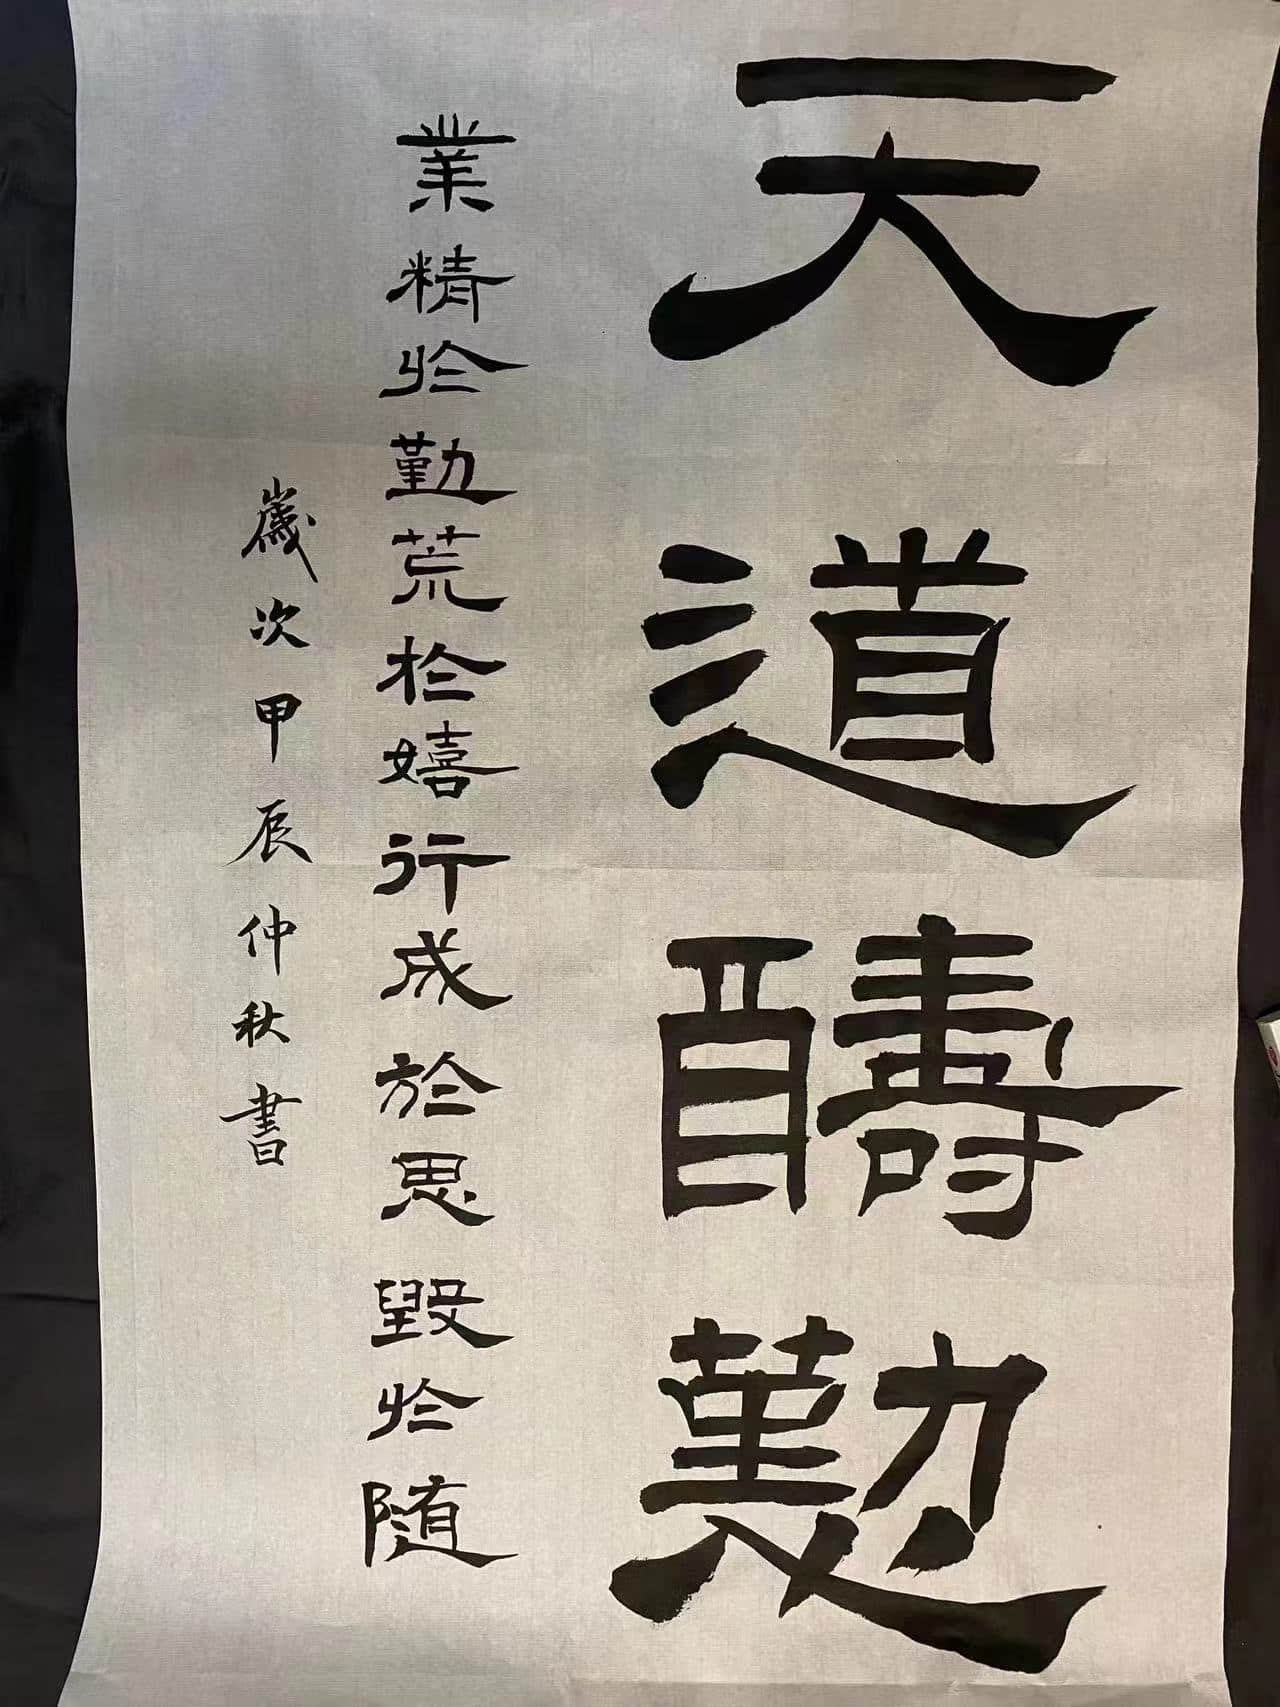 天道酬勤
業精於勤荒於嬉行成於思毀於随
歲次甲辰仲秋書